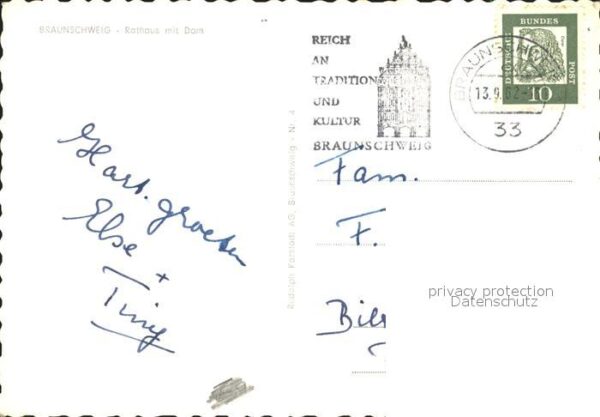 BRAUNSCHWEIG - Rathaus mit Dom
Hart. groeten
Else +
Tiny
Rudolph Karstadt AG, Braunschweig - Nr. 4
REICH
AN
TRADITION
UND
KULTUR
BRAUNSCHWEIG
BRAUNSCHWEIG
13.9.62
33
DEUTSCHE
BUNDES
POST
10
Fam.
F.
privacy protection
Datenschutz